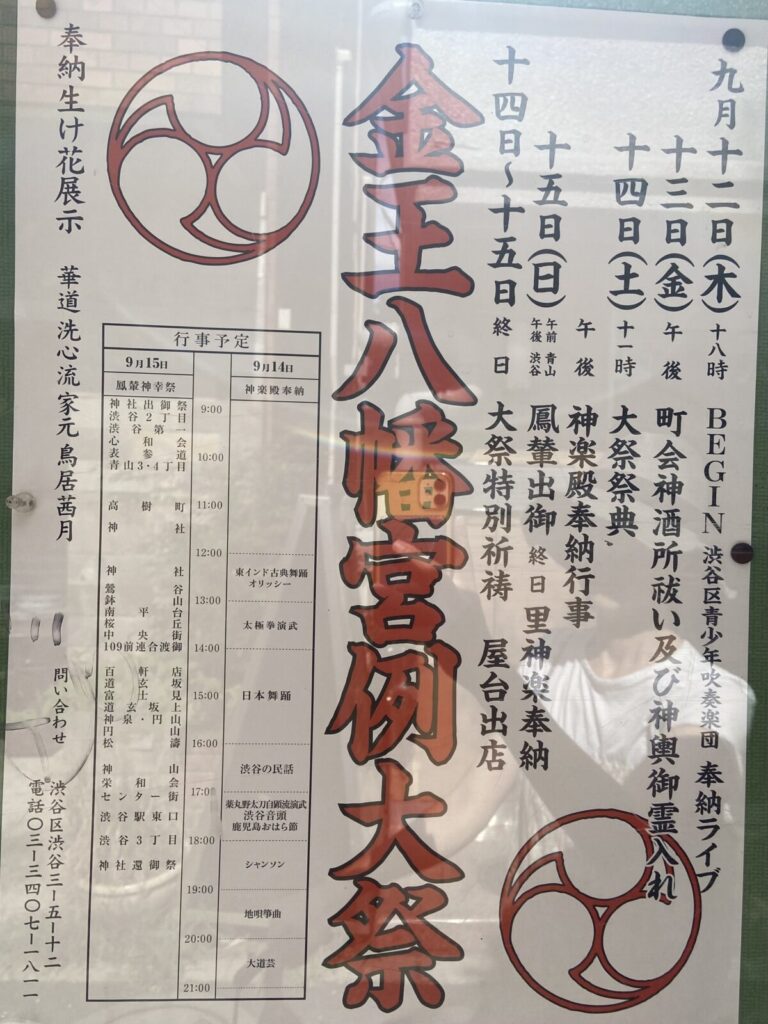 九月十二日(木) 十八時 BEGIN 渋谷区青少年吹奏楽団 奉納ライブ
十三日(金) 午後 町会神酒所祓い及び神輿御霊入れ
十四日(土) 十一時 大祭祭典
午後 神楽殿奉納行事
十五日(日) 午前 青山 午後 渋谷 鳳輦出御 終日 里神楽奉納
十四日～十五日 終日 大祭特別祈祷 屋台出店
金王八幡宮例大祭
行事予定
9月15日
9月14日
鳳輦神幸祭
神楽殿奉納
神社出御祭
渋谷2丁目
渋谷第一
心和会
表参道
青山3・4丁目
高樹町
神社
神社
鶯谷
鉢山
南平台
桜丘
中央街
109前連合渡御
百軒店
道玄坂
富士見
道玄坂上
神泉・円山
円山
松濤
神山
栄和会
センター街
渋谷駅東口
渋谷3丁目
神社還御祭
9:00
10:00
11:00
12:00
13:00
14:00
15:00
16:00
17:00
18:00
19:00
20:00
21:00
東インド古典舞踊
オリッシー
太極拳演武
日本舞踊
渋谷の民話
薬丸野太刀自顕流演武
渋谷音頭
鹿児島おはら節
シャンソン
地唄箏曲
大道芸
奉納生け花展示 華道洗心流家元 鳥居茜月
問い合わせ
渋谷区渋谷三-五-十二
電話〇三-三四〇七-一八一一